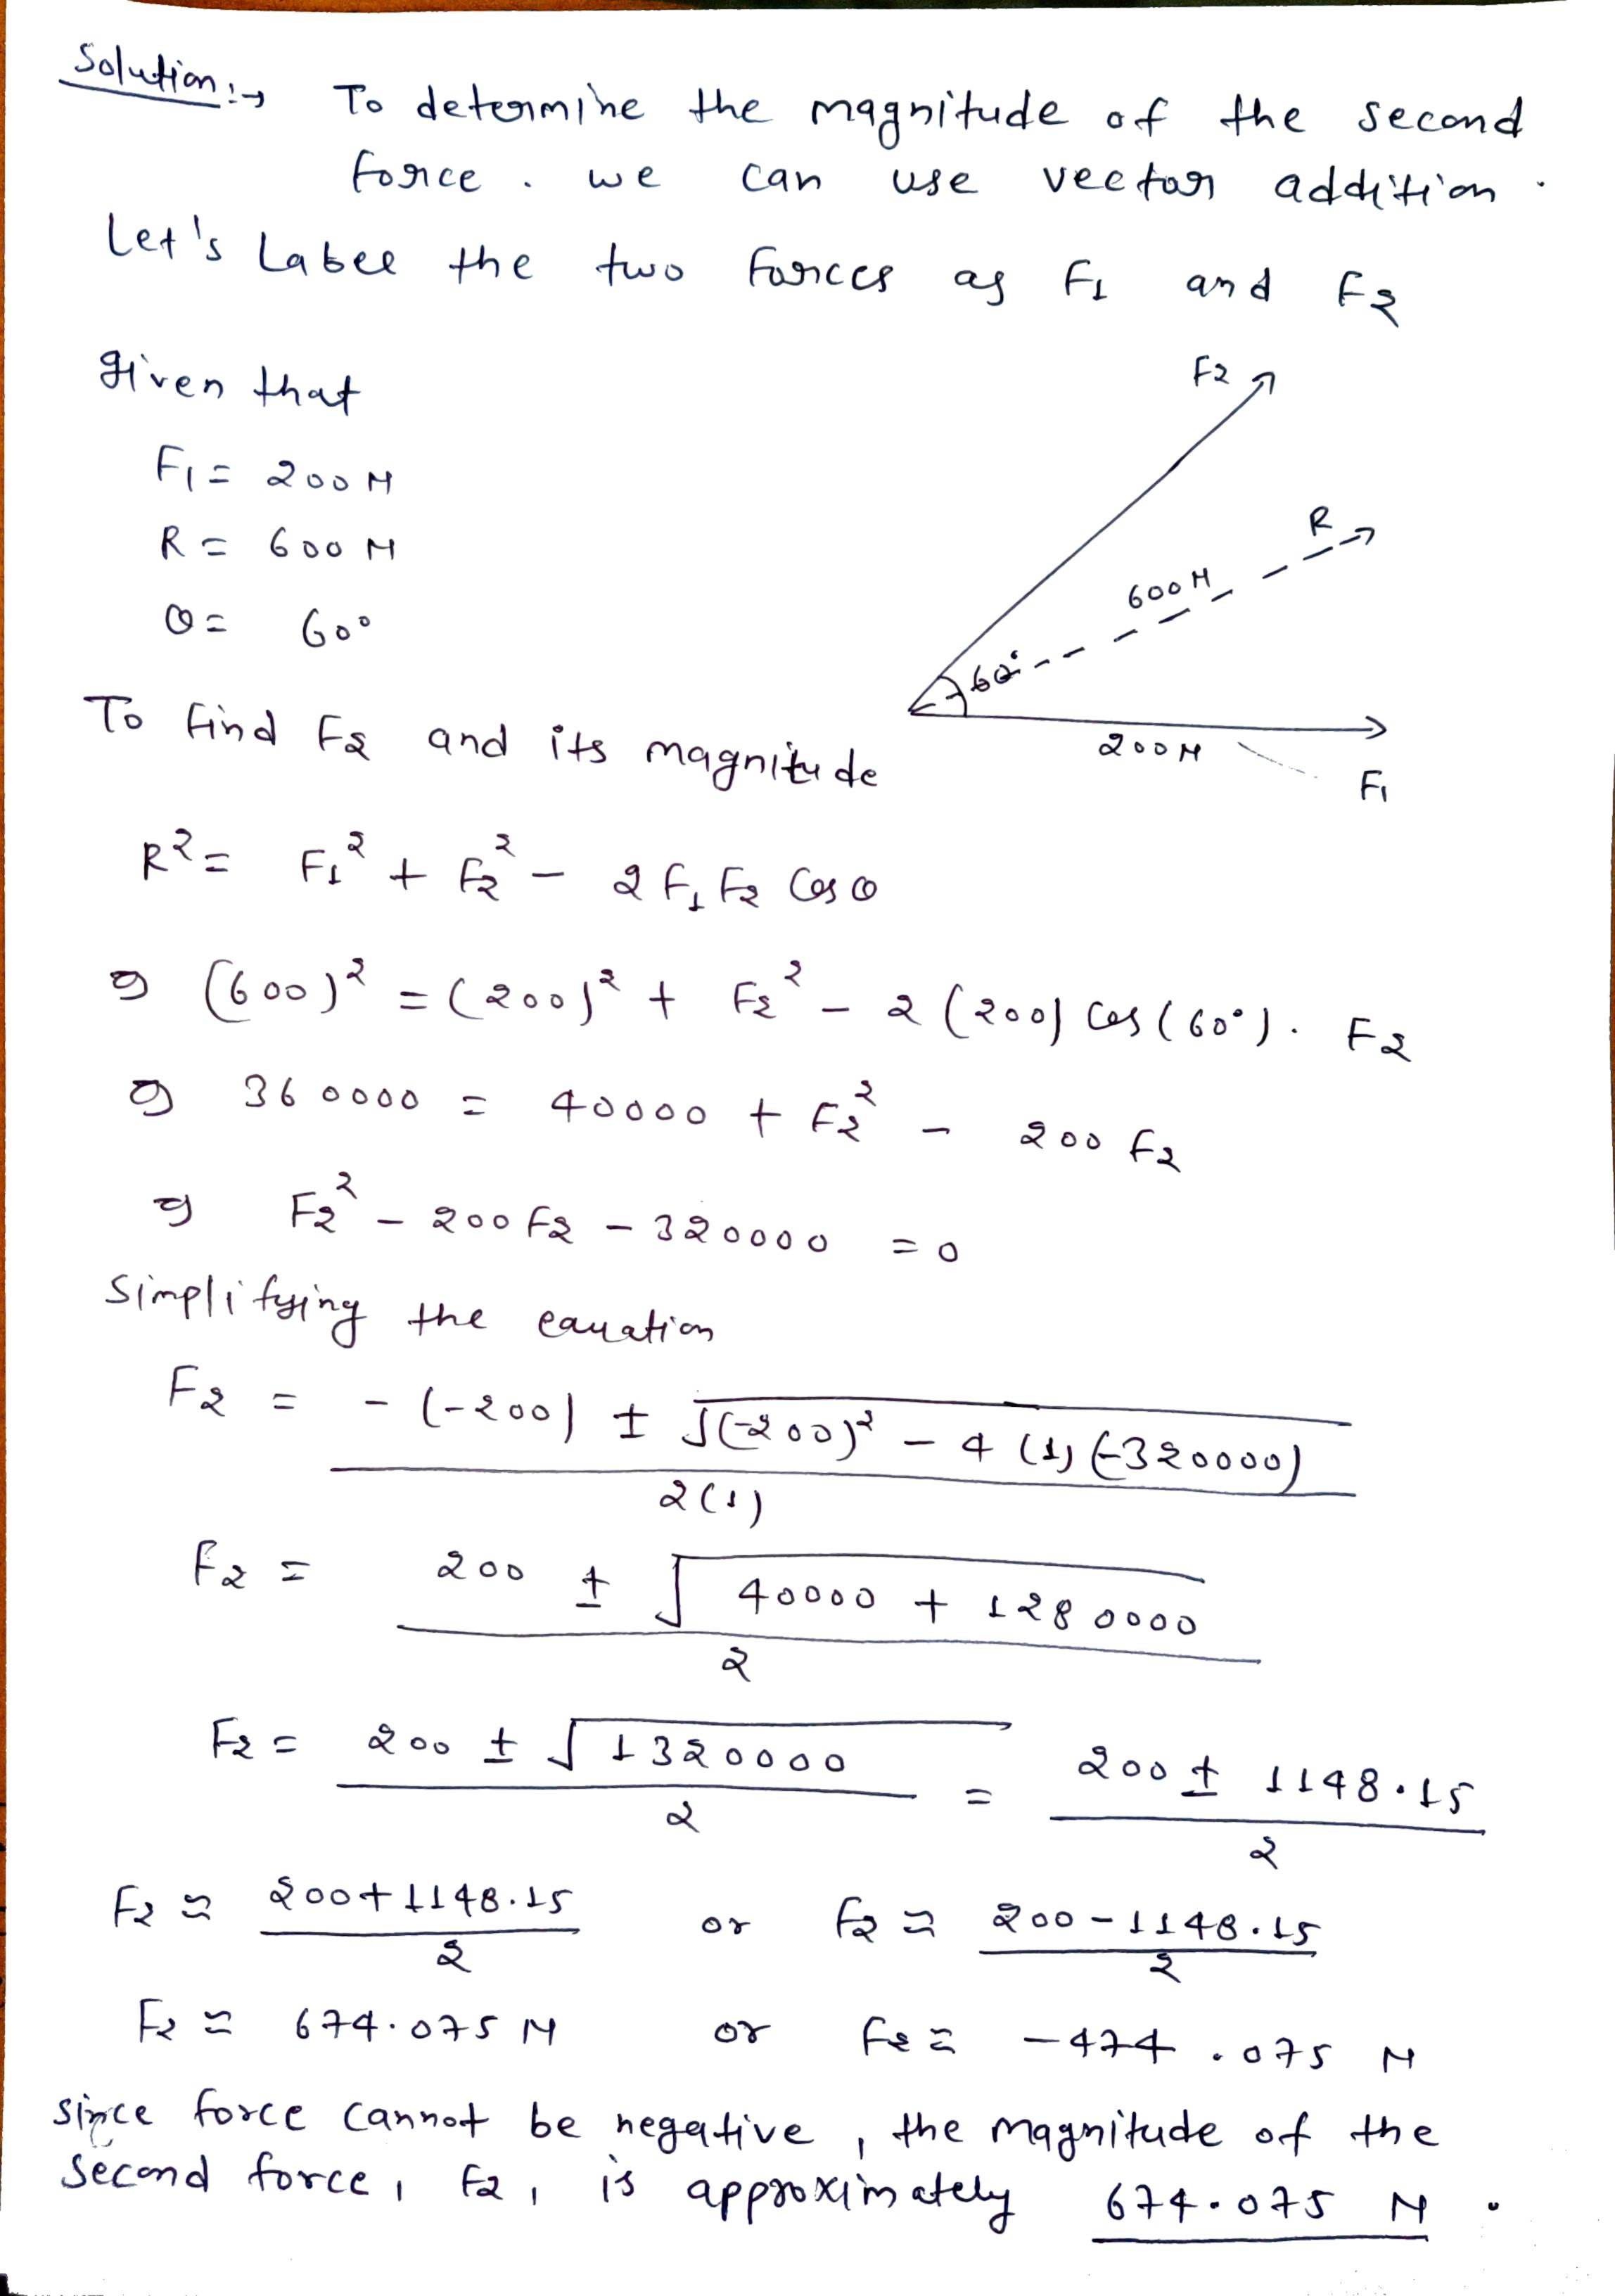 Solution:→ To determine the magnitude of the second
force. we can use vector addition.
Let's Label the two forces as F1 and F2
given that
F1 = 200 N
R = 600 N
θ = 60°
F2
R
600 N
60°
200 N
F1
To find F2 and its magnitude
R² = F1² + F2² - 2 F1 F2 Cos θ
⇒ (600)² = (200)² + F2² - 2 (200) Cos (60°). F2
⇒ 360000 = 40000 + F2² - 200 F2
⇒ F2² - 200 F2 - 320000 = 0
Simplifying the equation
F2 = (-(-200) ± √((-200)² - 4 (1) (-320000))) / 2(1)
F2 = (200 ± √(40000 + 1280000)) / 2
F2 = (200 ± √1320000) / 2 = (200 ± 1148.15) / 2
F2 ≈ (200 + 1148.15) / 2 or F2 ≈ (200 - 1148.15) / 2
F2 ≈ 674.075 N or F2 ≈ -474.075 N
since force cannot be negative, the magnitude of the
second force, F2, is approximately 674.075 N.